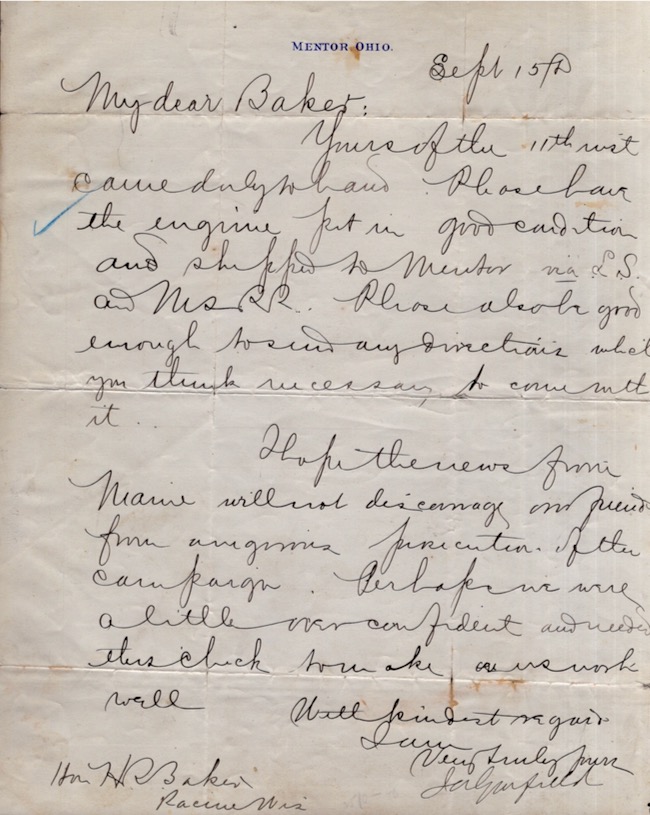 MENTOR OHIO.
Sept 15th
My dear Baker:
Yours of the 11th inst
came duly to hand. Please have
the engine put in good condition
and shipped to Mentor via L.S.
and M.S. R.R. Please also be good
enough to send any directions which
you think necessary to come with
it.
Hope the news from
Maine will not discourage our friends
from a vigorous prosecution of the
campaign. Perhaps we were
a little over confident and needed
this check to make us work
well
With kindest regards
I am
Very truly yours
J A Garfield
Hon H R Baker
Racine Wis